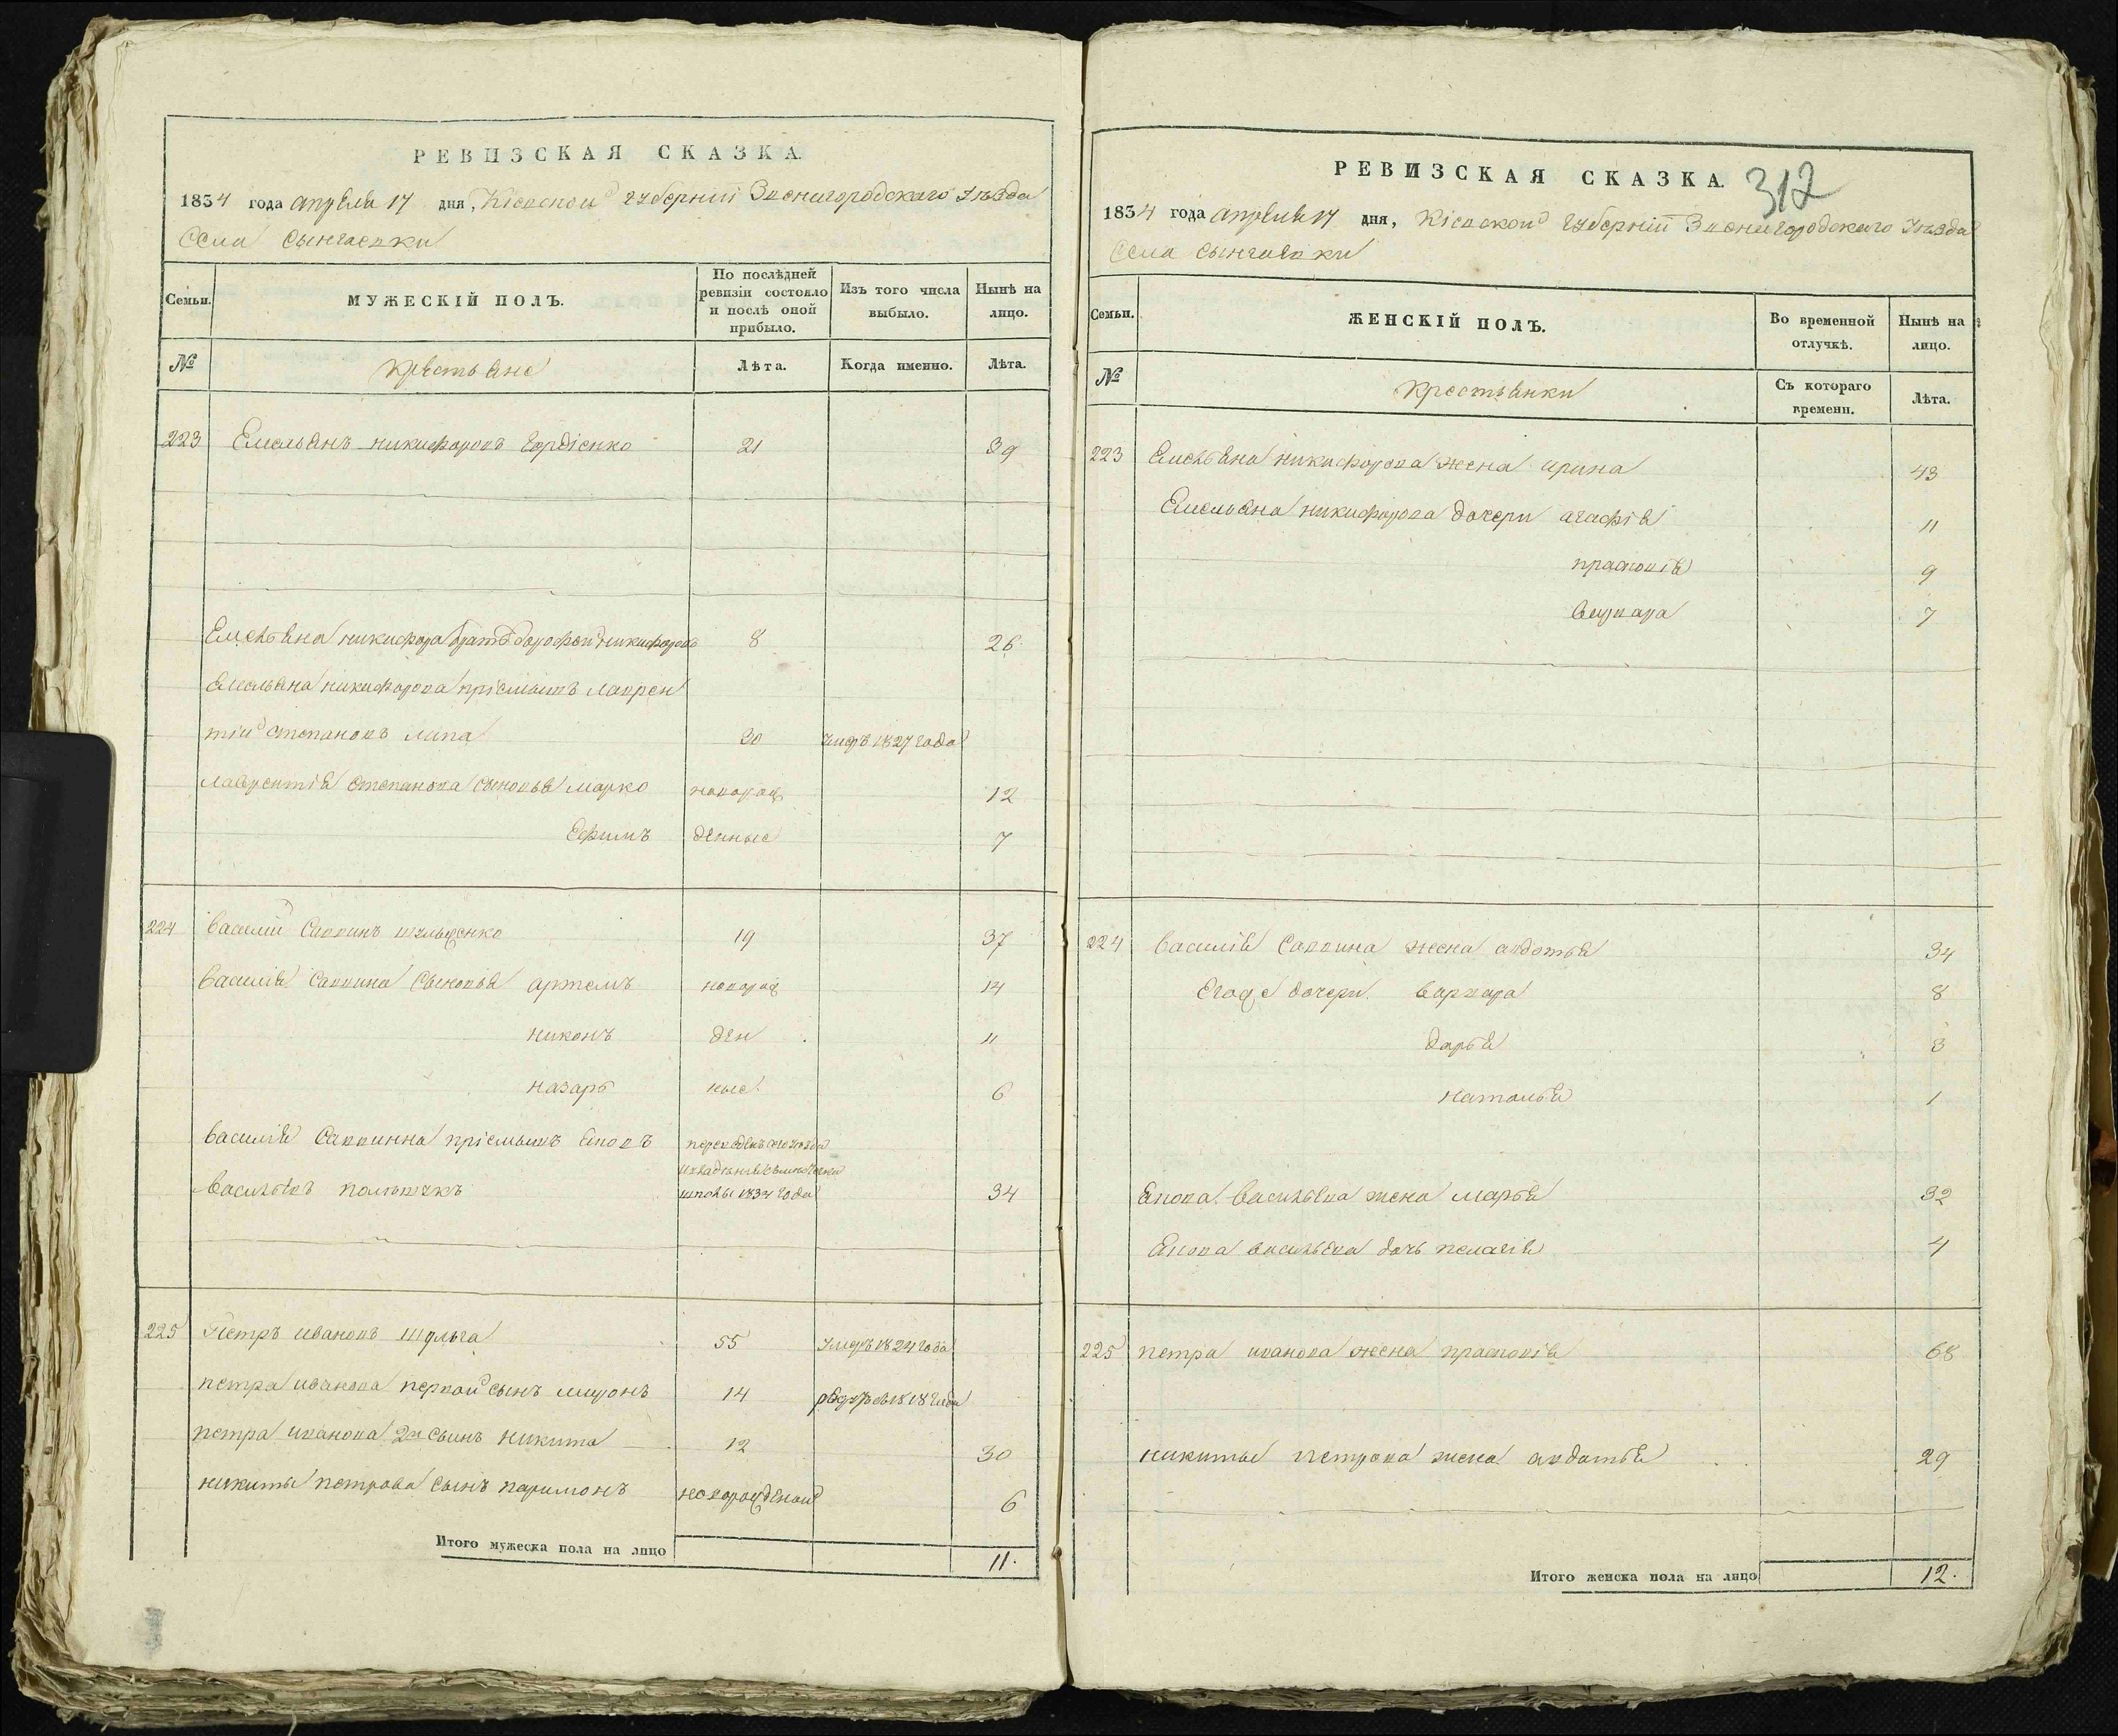 РЕВИЗСКАЯ СКАЗКА.
1834 года апреля 17 дня, Кіевской губерніи Звенигородского Уѣзда
Села Сынгаевки
Семьи.
МУЖЕСКІЙ ПОЛЪ.
По послѣдней ревизіи состояло и послѣ оной прибыло.
Изъ того числа выбыло.
Нынѣ на лицо.
№
Крестьяне
Лѣта.
Когда именно.
Лѣта.
223 Емельянъ никифоровъ Гордіенко 21 39
Емельяна никифора братъ дорофей никифоровъ 8 26
Емельяна никифорова пріемышъ Лаврен
тій степановъ Липа 30 умеръ 1827 года
Лаврентія степанова сыновья марко новорож 12
Ефимъ денные 7
224 Василій Саввинъ 19 37
Василія Саввина Сыновья артемъ новорож 14
никонъ ден 11
назаръ ные. 6
Василія Саввинна пріемышъ
васильевъ 1834 года 34
225 Петръ ивановъ Шульга 55 Умеръ 1824 года
петра иванова первой сынъ миронъ 14 1818 года
петра иванова 2й сынъ никита 12 30
никиты петрова сынъ паримонъ новорожденой 6
Итого мужеска пола на лицо 11.
312
РЕВИЗСКАЯ СКАЗКА.
1834 года апреля 17 дня, Кіевской губерніи Звенигородского Уѣзда
Села Сынгаевки
Семьи.
ЖЕНСКІЙ ПОЛЪ.
Во временной отлучкѣ.
Нынѣ на лицо.
№
Крестьянки
Съ котораго времени.
Лѣта.
223 Емельяна никифорова жена ирина 43
Емельяна никифорова дочери агафія 11
прасковія 9
варвара 7
224 Василія Саввина жена авдотья 34
Егоже дочери варвара 8
дарья 3
наталья 1
васильева жена марья 32
васильева дочь пелагія 4
225 петра иванова жена прасковія 68
никиты петрова жена авдотья 29
Итого женска пола на лицо 12.